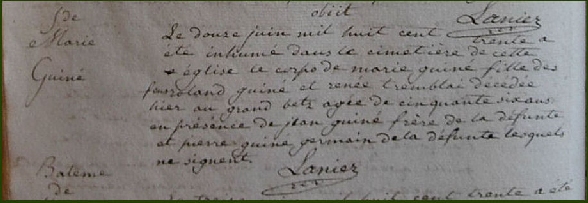 obiit
Lanier
S de
Marie
Guiné
Le douze juin mil huit cent trente a
été inhumé dans le cimetière de cette
église le corps de marie guiné fille de
guiné et renée tremblai décédée
hier au grand betz agée de cinquante six ans
en présence de jean guiné frère de la défunte
et pierre guiné germain de la défunte lesquels
ne signent.
Lanier
Batême
de
huit cent trente a été